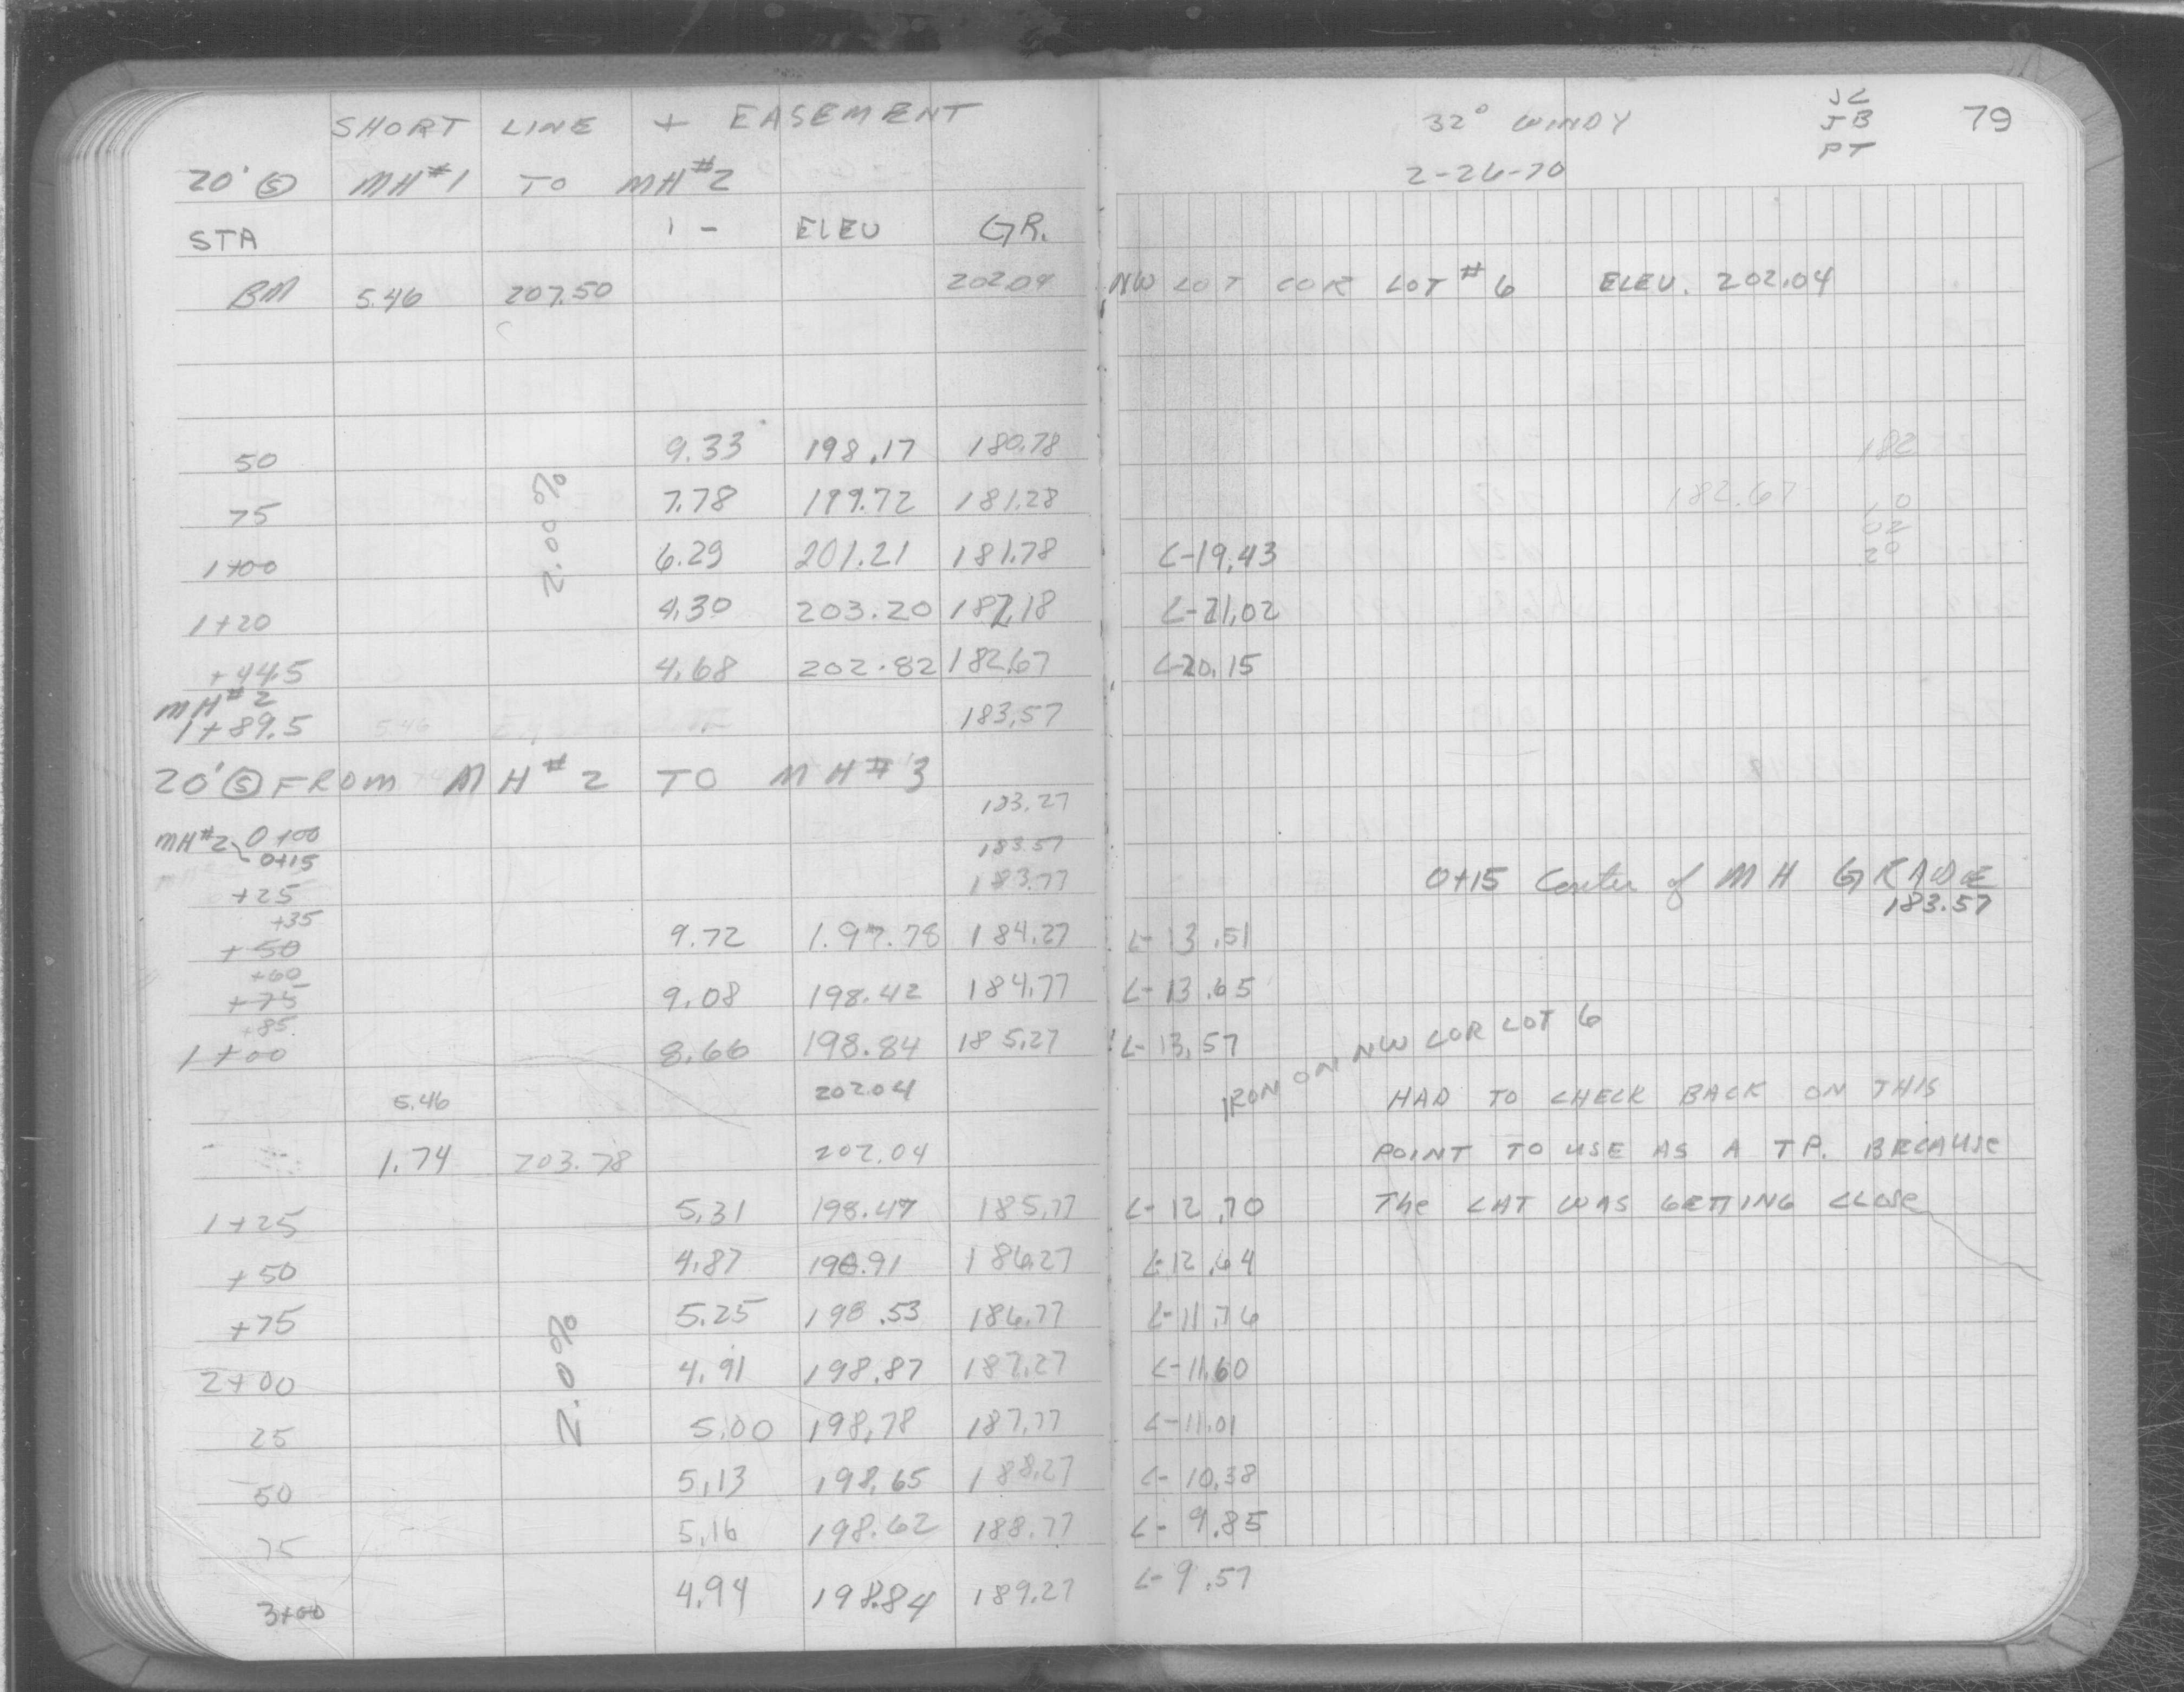 SHORT LINE + EASEMENT
20' Ⓢ MH#1 TO MH#2
STA 1 - ELEV GR.
BM 5.46 207.50 202.04
50 9.33 198.17 180.78
75 7.78 199.72 181.28
1+00 6.29 201.21 181.78
1+20 4.30 203.20 182.18
+44.5 4.68 202.82 182.67
MH#2
1+89.5 5.46 183.57
20' Ⓢ FROM MH#2 TO MH#3
183.27
MH#2 0+00 183.57
0+15
+25 183.77
+35
+50 9.72 197.78 184.27
+60
+75 9.08 198.42 184.77
+85
1+00 8.66 198.84 185.27
5.46 202.04
1.74 203.78 202.04
1+25 5.31 198.47 185.77
+50 4.87 198.91 186.27
+75 5.25 198.53 186.77
2+00 4.91 198.87 187.27
25 5.00 198.78 187.77
50 5.13 198.65 188.27
75 5.16 198.62 188.77
3+00 4.94 198.84 189.27
2.00%
2.0%
32° WINDY
2-26-70
JC
JB
PT
79
NW LOT COR LOT #6 ELEV. 202.04
182
182.67
10
02
20
C-19.43
C-21.02
C-20.15
0+15 Center of MH GRADE
183.57
C-13.51
C-13.65
C-13.57
IRON ON NW COR LOT 6
HAD TO CHECK BACK ON THIS
POINT TO USE AS A TP. BECAUSE
C-12.70 The CAT WAS GETTING CLOSE
C-12.64
C-11.76
C-11.60
C-11.01
C-10.38
C-9.85
C-9.57